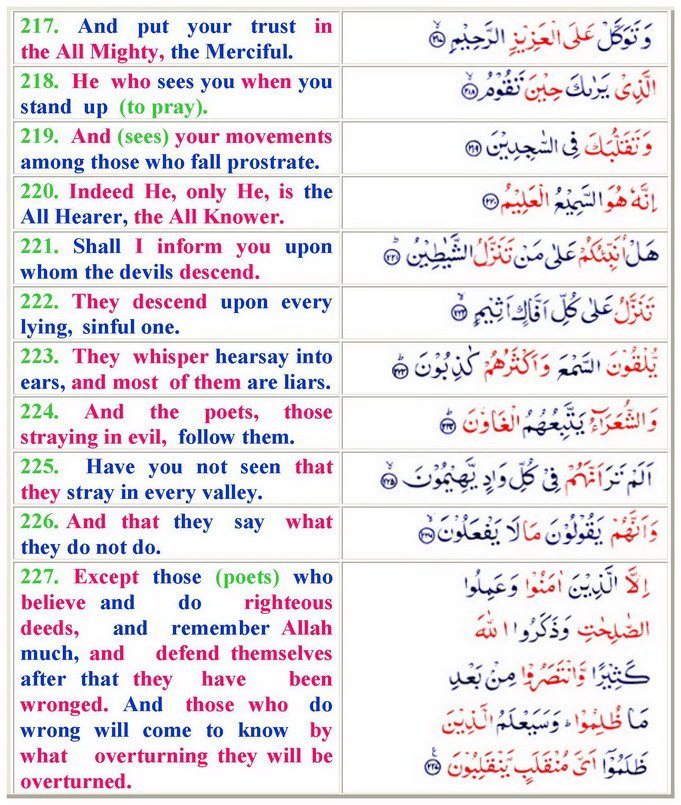 217. And put your trust in
the All Mighty, the Merciful.
وَتَوَكَّلْ عَلَى الْعَزِيْزِ الرَّحِيْمِۙ ﴿۲۱۷﴾
218. He who sees you when you
stand up (to pray).
الَّذِىْ يَرٰٮكَ حِيْنَ تَقُوْمُۙ ﴿۲۱۸﴾
219. And (sees) your movements
among those who fall prostrate.
وَتَقَلُّبَكَ فِى السّٰجِدِيْنَ ﴿۲۱۹﴾
220. Indeed He, only He, is the
All Hearer, the All Knower.
اِنَّهٗ هُوَ السَّمِيْعُ الْعَلِيْمُ ﴿۲۲۰﴾
221. Shall I inform you upon
whom the devils descend.
هَلْ اُنَبِّئُكُمْ عَلٰى مَنْ تَنَزَّلُ الشَّيٰطِيْنُؕ ﴿۲۲۱﴾
222. They descend upon every
lying, sinful one.
تَنَزَّلُ عَلٰى كُلِّ اَفَّاكٍ اَثِيْمٍۙ ﴿۲۲۲﴾
223. They whisper hearsay into
ears, and most of them are liars.
يُّلْقُوْنَ السَّمْعَ وَاَكْثَرُهُمْ كٰذِبُوْنَؕ ﴿۲۲۳﴾
224. And the poets, those
straying in evil, follow them.
وَالشُّعَرَآءُ يَتَّبِعُهُمُ الْغَاوٗنَؕ ﴿۲۲۴﴾
225. Have you not seen that
they stray in every valley.
اَلَمْ تَرَ اَنَّهُمْ فِىْ كُلِّ وَادٍ يَّهِيْمُوْنَۙ ﴿۲۲۵﴾
226. And that they say what
they do not do.
وَاَنَّهُمْ يَقُوْلُوْنَ مَا لَا يَفْعَلُوْنَۙ ﴿۲۲۶﴾
227. Except those (poets) who
believe and do righteous
deeds, and remember Allah
much, and defend themselves
after that they have been
wronged. And those who do
wrong will come to know by
what overturning they will be
overturned.
اِلَّا الَّذِيْنَ اٰمَنُوْا وَعَمِلُوا
الصّٰلِحٰتِ وَذَكَرُوا اللّٰهَ
كَثِيْرًا وَّانْتَصَرُوْا مِنْۢ بَعْدِ
مَا ظُلِمُوْاؕ وَسَيَعْلَمُ الَّذِيْنَ
ظَلَمُوْۤا اَىَّ مُنْقَلَبٍ يَّنْقَلِبُوْنَ ﴿۲۲۷﴾